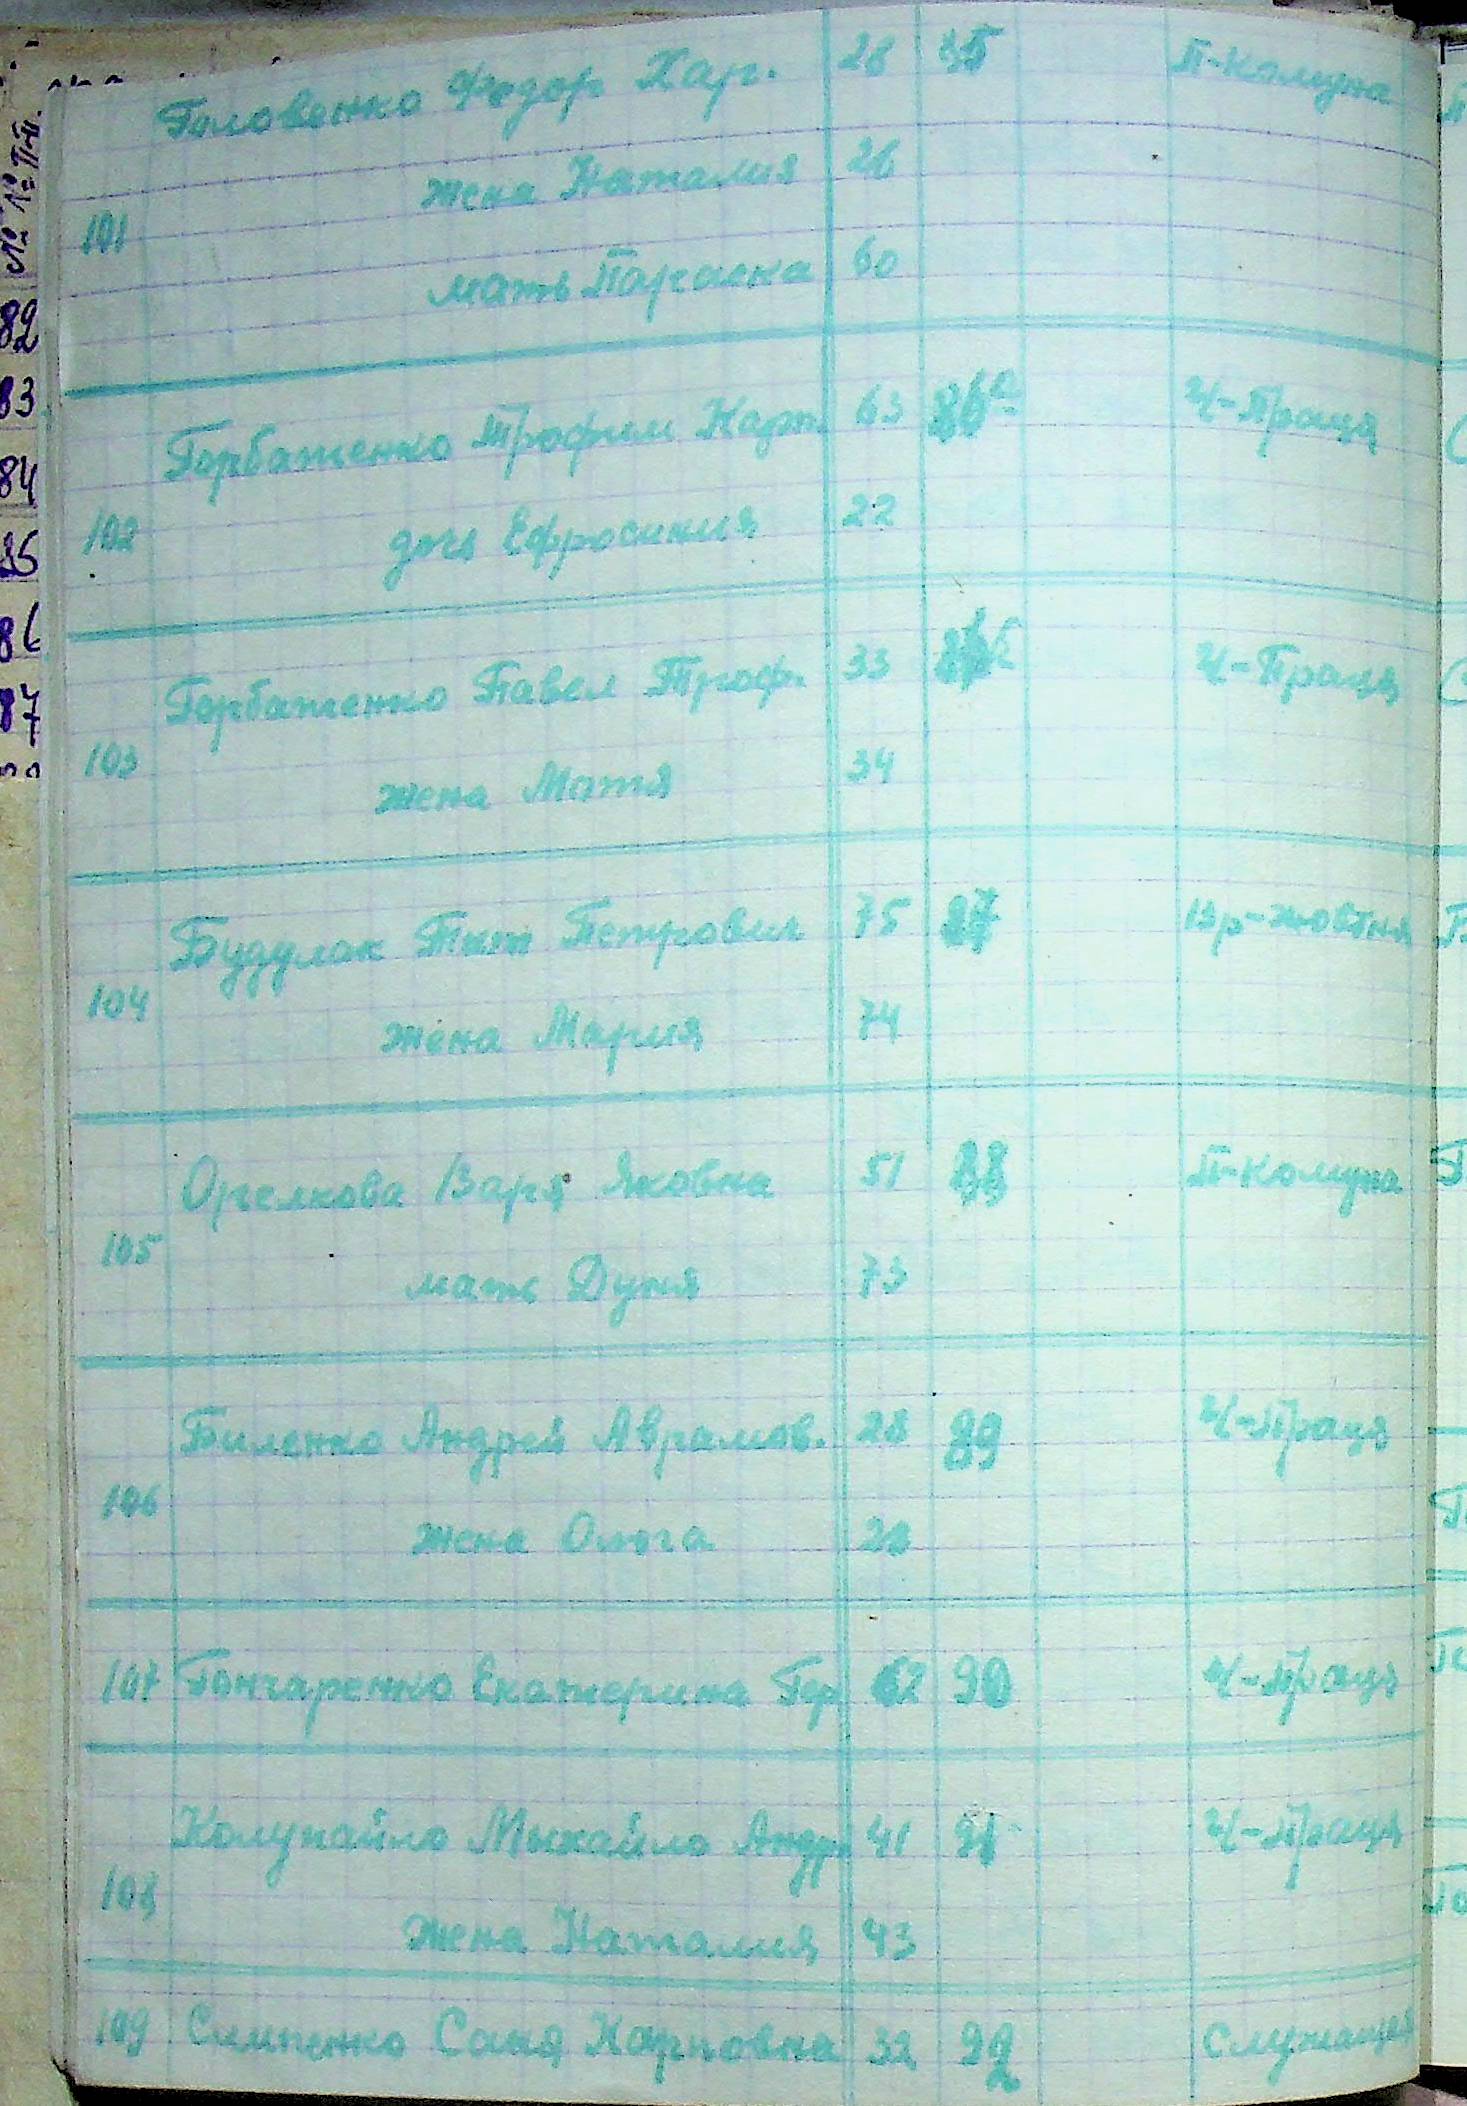 Головенко Федор Хар. 28 85 П-Комуна
жена Наталия 26
101
мать Параска 60
Горбатенко Трофим Карп. 63 86а Ч-Праця
102 дочь Ефросиния 22
Горбатенко Павел Троф. 33 86б Ч-Праця
103 жена Мотя 34
Будулак Тит Петрович 75 87 13р-Жовтня
104 жена Мария 74
Оргелкова Варя Яковна 51 88 П-Комуна
105 мать Дуня 73
Биленко Андрей Аврамов. 28 89 Ч-Праця
106 жена Ольга
107 Гончаренко Екатерина Гер 62 90 Ч-Праця
Колупайло Мыхайло Андр. 41 91 Ч-Праця
108 жена Наталия 43
109 Симпенко Саня Карповна 32 92 Служащая
№ № П-п.
82
83
84
85
86
87